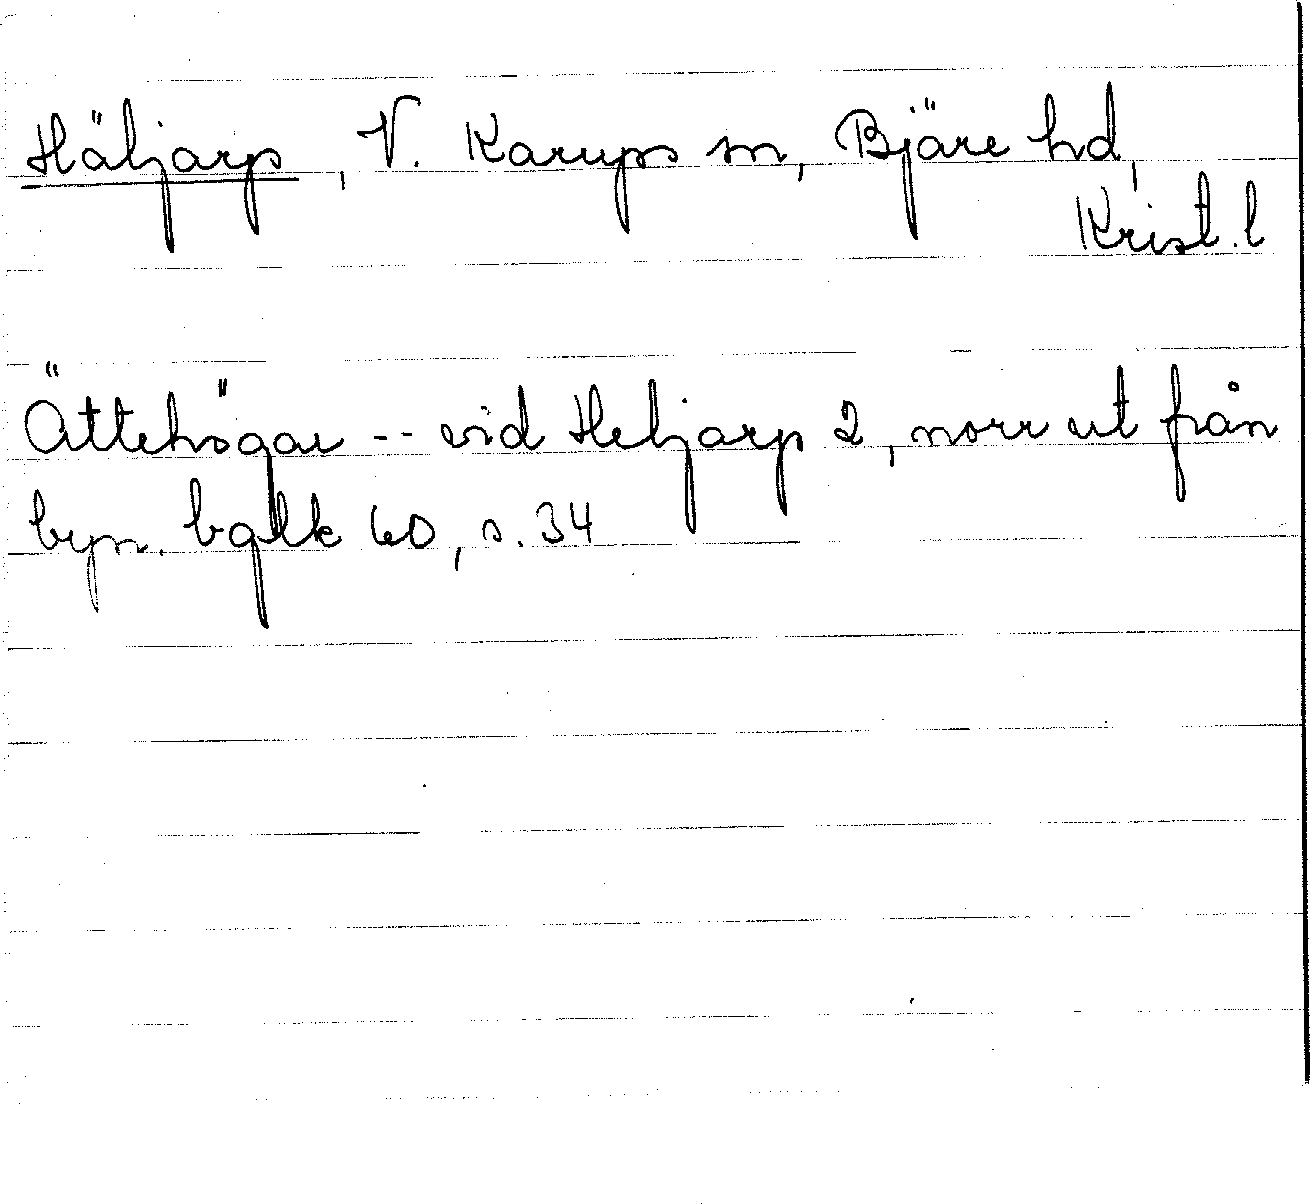 Häljarp, V. Karups sn, Bjäre hd,
Krist. l
Ättehögar -- vid Heljarp 2, norr ut från
byn. bglk 60, s. 34